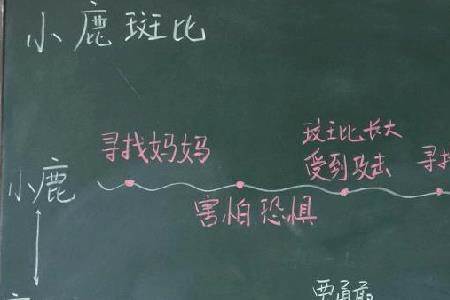 小鹿斑比
寻找妈妈
斑比长大
受到攻击
寻找
小鹿
害怕恐惧
要勇敢